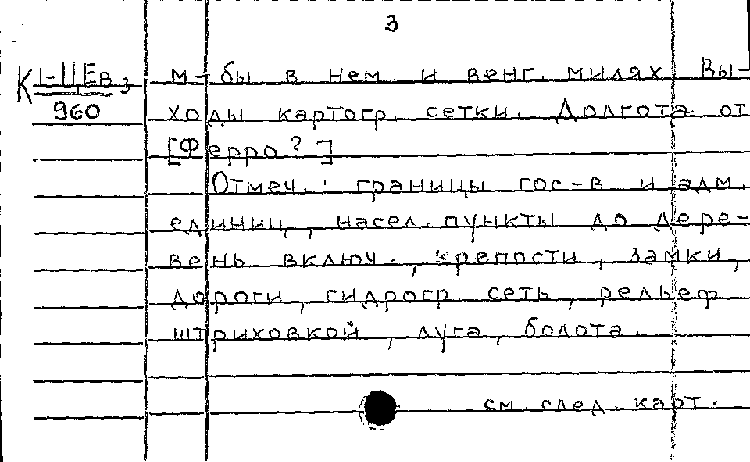 3
К 1-ЦЕв 3
960
м-бы в нем. и венг. милях. Вы-
ходы картогр. сетки. Долгота от
[Ферро?]
Отмеч.: границы гос-в и адм.
единиц, насел. пункты до дере-
вень включ., крепости, замки,
дороги, гидрогр. сеть, рельеф
штриховкой, луга, болота.
см. след. карт.